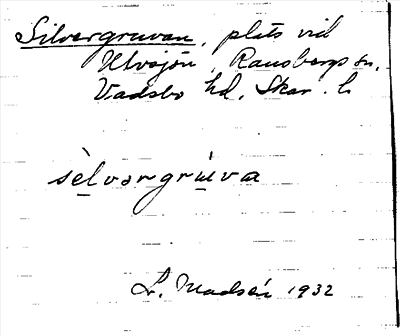 Silvergruvan, plats vid
Ulvsjön, Ransbergs sn,
Vadsbo hd, Skar. l.
sèlvərgrùva
L. Madsén 1932